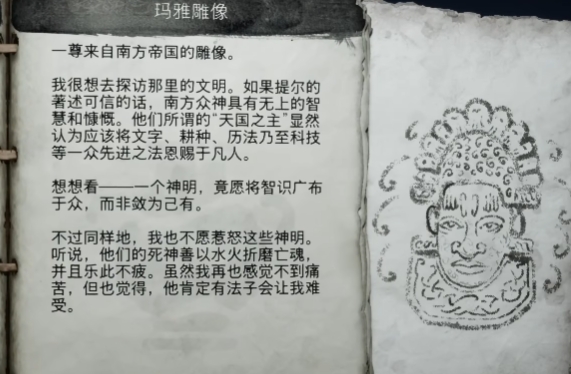 玛雅雕像
一尊来自南方帝国的雕像。
我很想去探访那里的文明。如果提尔的
著述可信的话，南方众神具有无上的智
慧和慷慨。他们所谓的“天国之主”显然
认为应该将文字、耕种、历法乃至科技
等一众先进之法恩赐于凡人。
想想看——一个神明，竟愿将智识广布
于众，而非敛为己有。
不过同样地，我也不愿惹怒这些神明。
听说，他们的死神善以水火折磨亡魂，
并且乐此不疲。虽然我再也感觉不到痛
苦，但也觉得，他肯定有法子会让我难
受。